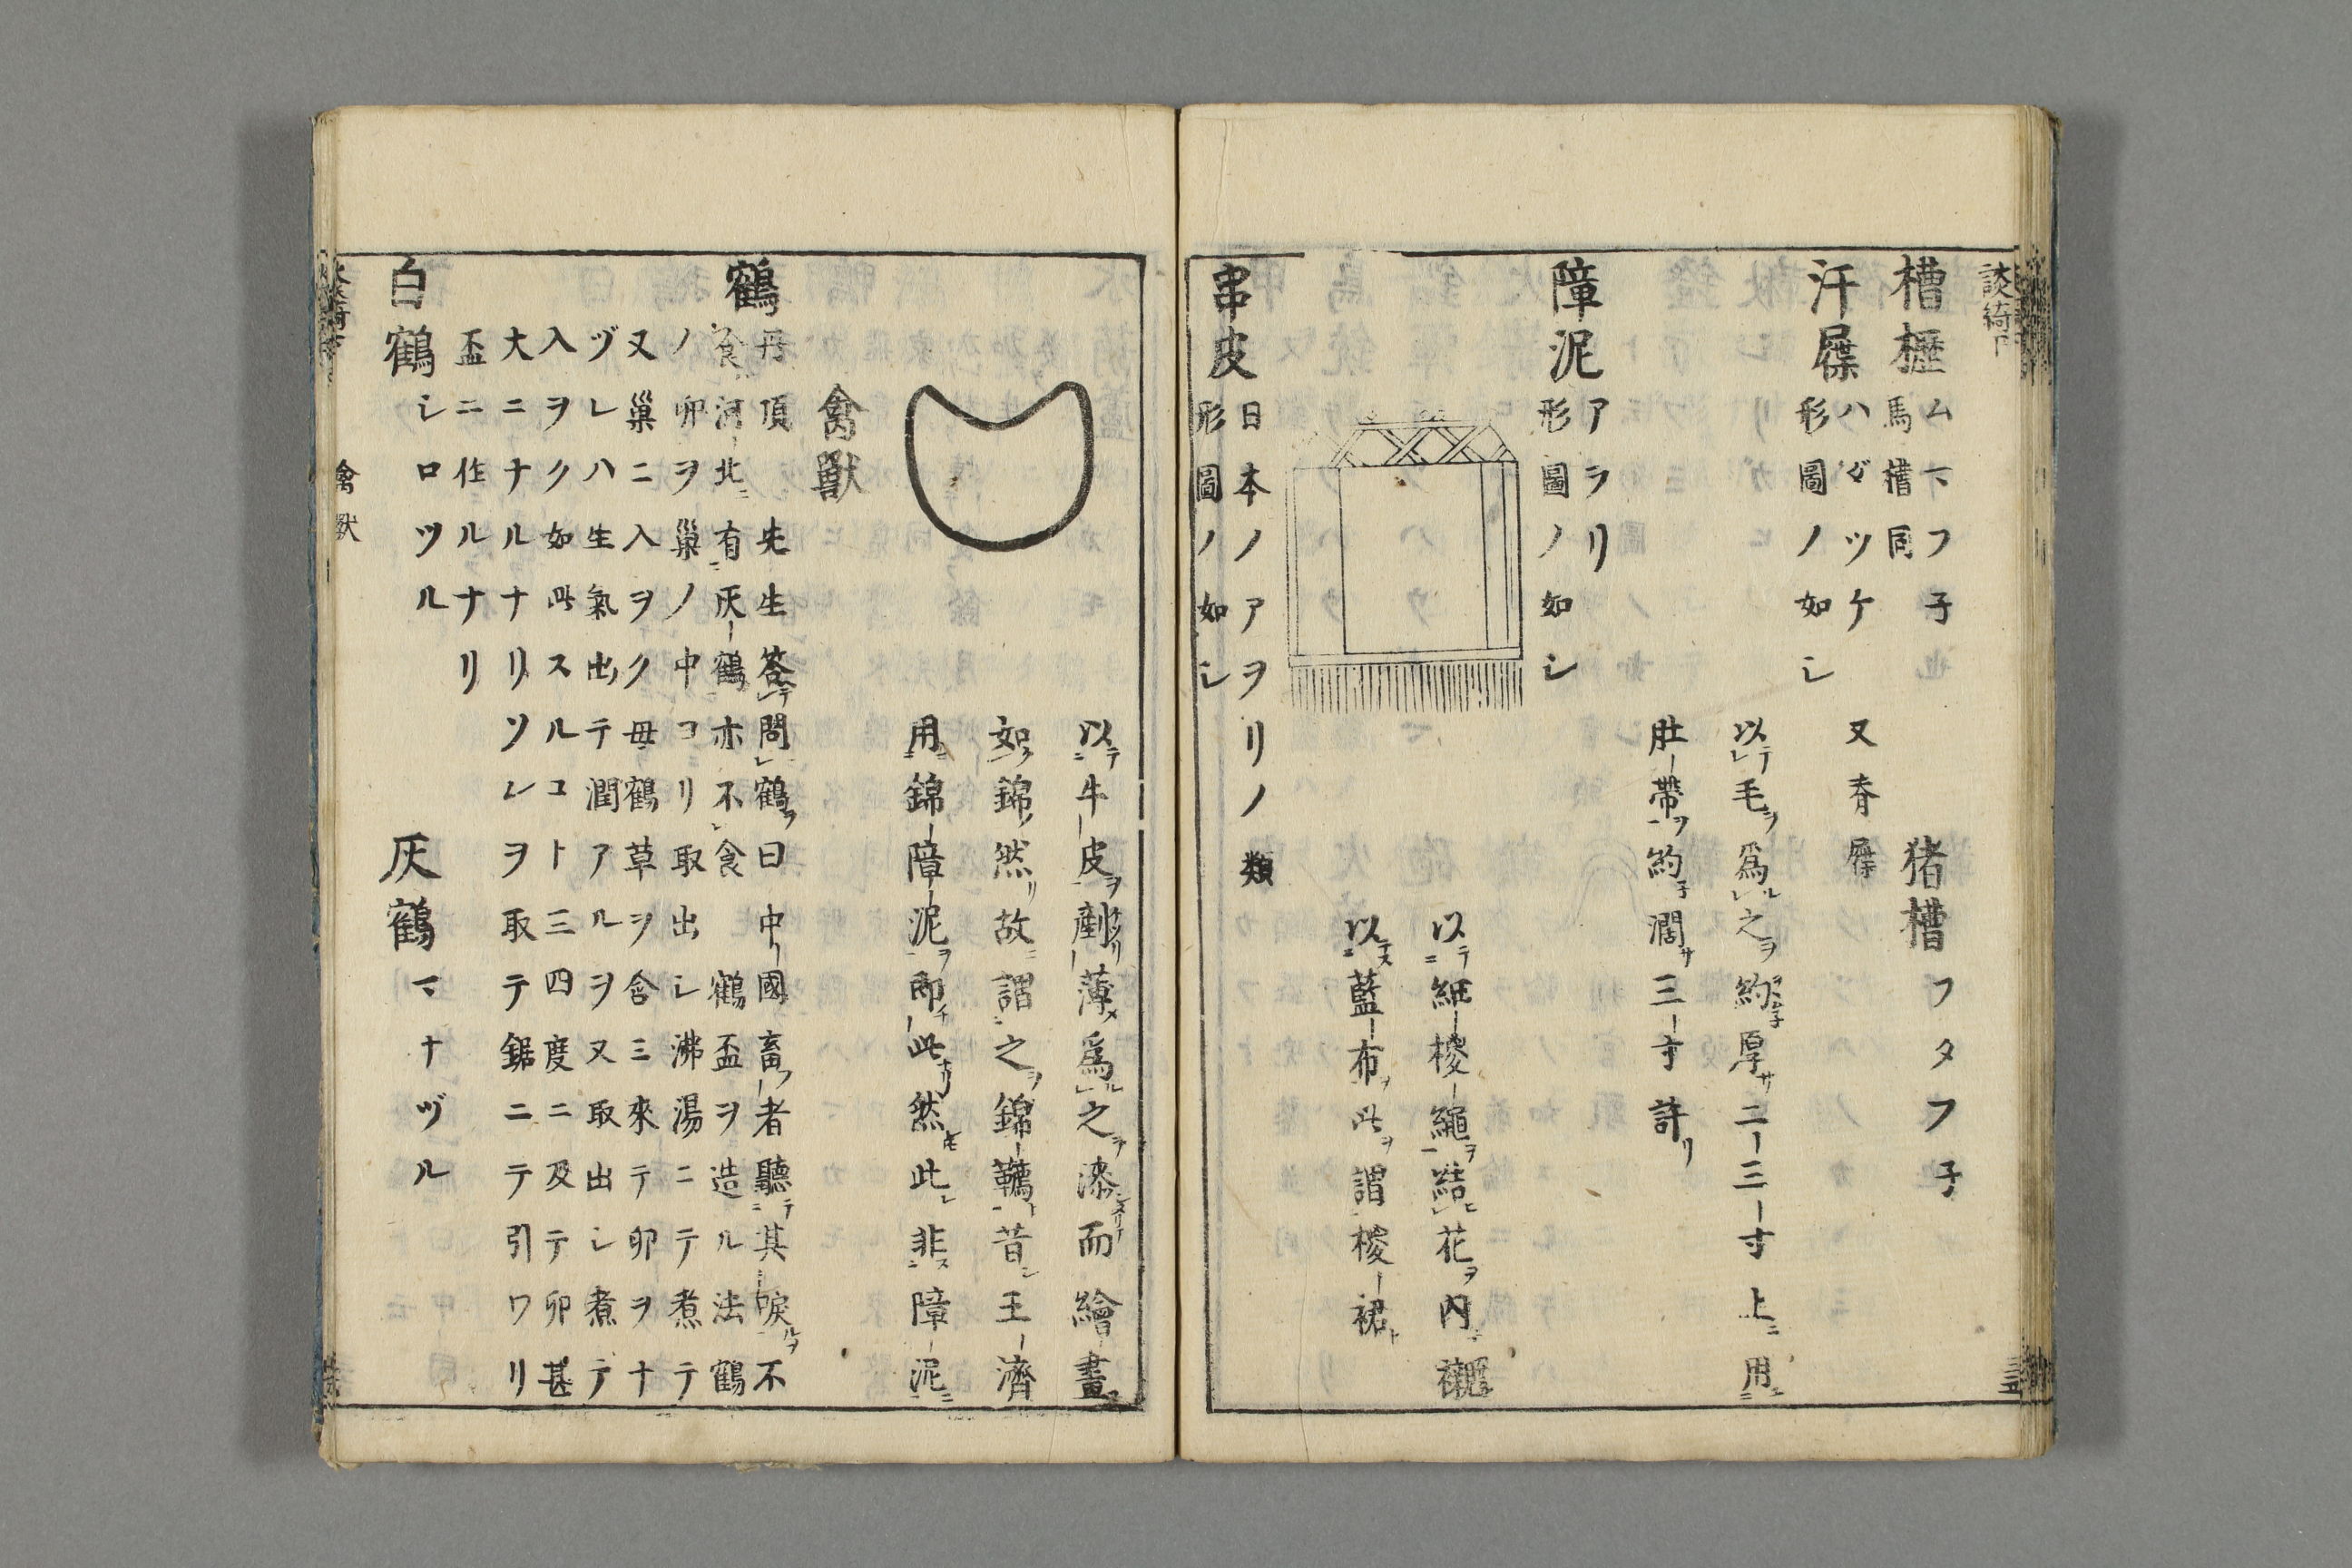 談綺下
槽櫪ムマフ子也
馬槽同
猪槽フタフ子
汗屧ハダツケ
形圖ノ如シ
又脊屧
以テレ毛ヲ爲ルレ之ヲ約厚サ二三寸上ニ用ニ
肚帶ヲ約子濶サ三寸許リ
障泥アラリ
形圖ノ如シ
以テ二細椶繩ヲ一結ヒレ花ヲ内襯
以テス二藍布ヲ此ヲ謂椶裙ト
串皮日本ノアヲリノ類
形圖ノ如シ
以テ二牛皮ヲ劃薄メ爲ルレ之ヲ漆而繪畫
如錦ノ然リ故ニ謂二之ヲ錦韉ト一昔シ王濟
用二錦障泥ヲ一即チ此ナリ然モ此レ非ス二障泥ニ
禽獸
鶴丹頂 先生答テレ問レ鶴ヲ曰中國畜フ者聽テ二其唳ルヲ不
レ食河北ニ有二灰鶴亦不レ食 鶴盃ヲ造ル法鶴
ノ卵ヲ巢ノ中ヨリ取出シ沸湯ニテ煮テ
又巢ニ入ヲク毋鶴草ヲ含ミ來テ卵ヲナ
ヅレハ生氣出テ潤アルヲ又取出シ煮テ
入ヲク如此スルコト三四度ニ及テ卵甚
大ニナルナリソレヲ取テ鋸ニテ引ワリ
盃ニ作ルナリ
白鶴シロツル
灰鶴マナヅル
禽獸